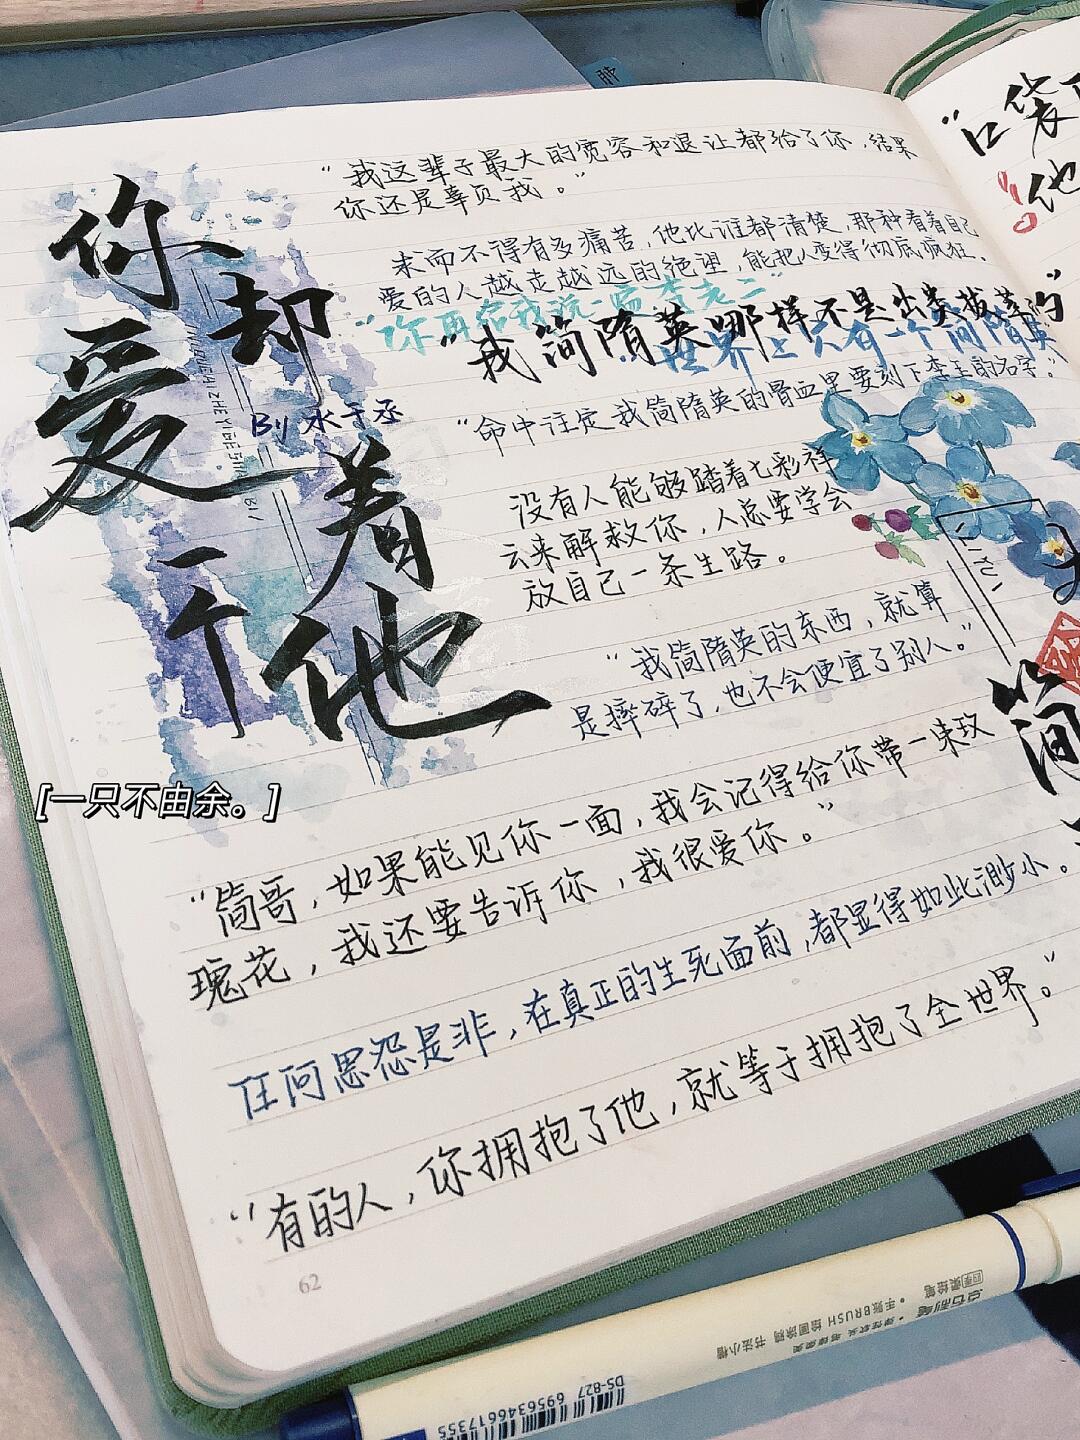 你却
爱着
一个他
By 水千丞
“我这辈子最大的宽容和退让都给了你,结果
你还是辜负我。”
求而不得有多痛苦,他比谁都清楚,那种看着自己
爱的人越走越远的绝望,能把人变得彻底疯狂。
“你再给我说一遍李老二”
“我简隋英哪样不是出类拔萃的”
世界上只有一个简隋英
“命中注定我简隋英的骨血里要刻下李玉的名字。”
没有人能够踏着七彩祥
云来解救你,人总要学会
放自己一条生路。
“我简隋英的东西,就算
是摔碎了,也不会便宜了别人。”
[一只不由余。]
“简哥,如果能见你一面,我会记得给你带一束玫
瑰花,我还要告诉你,我很爱你。”
任何恩怨是非,在真正的生死面前,都显得如此渺小。
“有的人,你拥抱了他,就等于拥抱了全世界。”
62
“口袋
他
简
DS-827
6956346617355